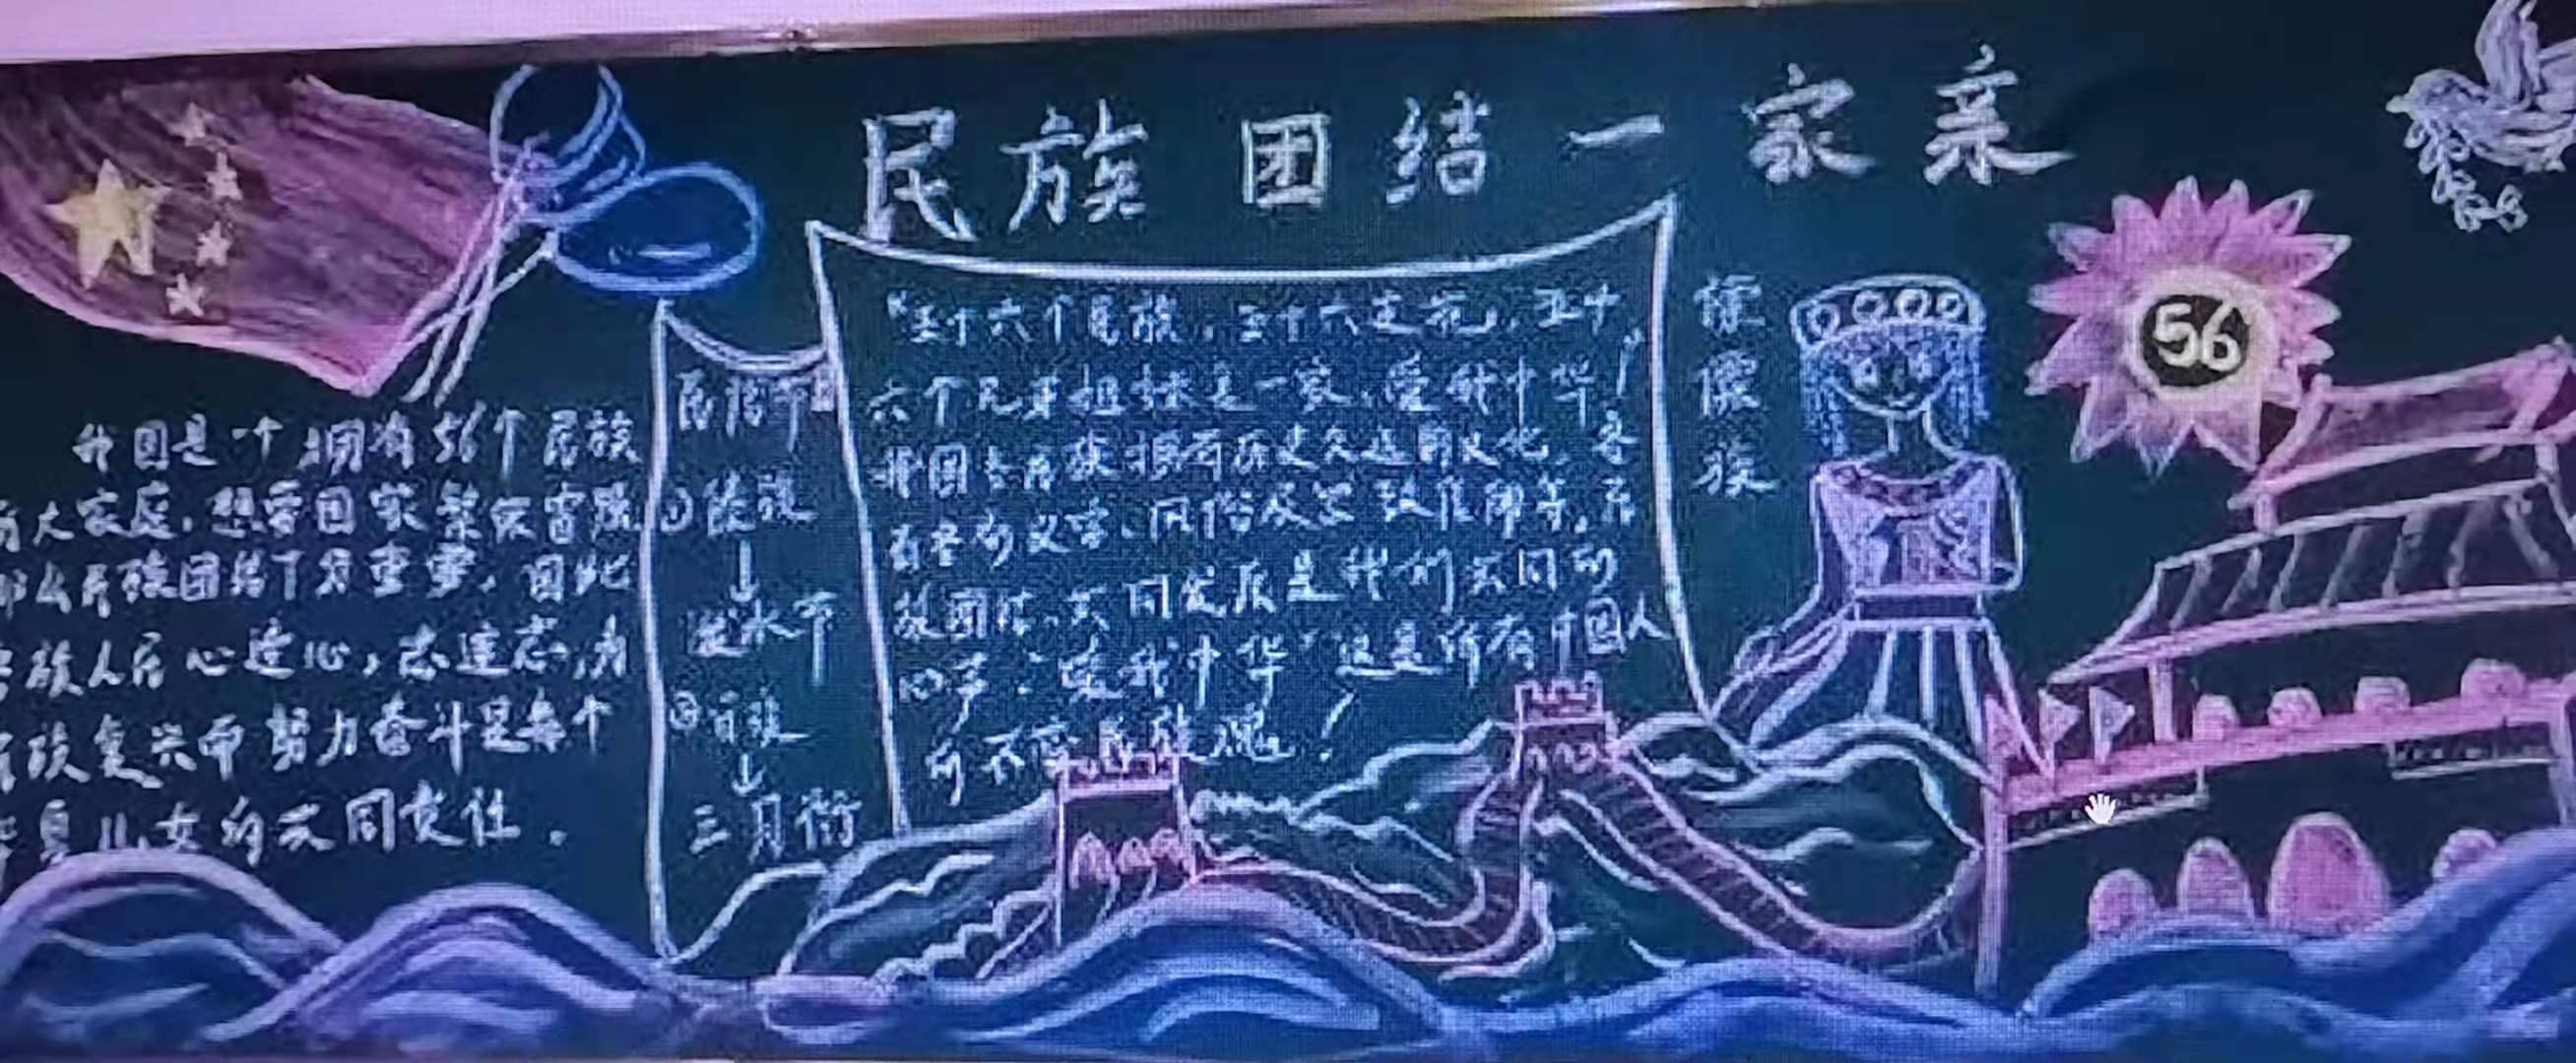 民族团结一家亲
我国是一个拥有56个民族
大家庭,想要国家繁荣富强
那么民族团结十分重要,因此
族人民心连心,志连志,为
民族复兴而努力奋斗是每个
华夏儿女的共同责任.
民族节日
①傣族
↓
泼水节
②白族
↓
三月街
“五十六个民族,五十六支花,五十
六个兄弟姐妹是一家,爱我中华!”
我国各民族拥有历史久远的文化,各
有各的文字、风俗及宗教信仰等,民
族团结、共同发展是我们共同的
心声.“爱我中华”这是所有中国人
的不变民族魂!
傈
僳
族
56